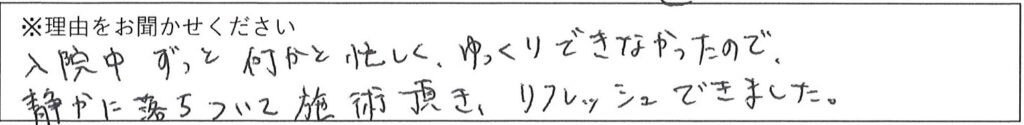 ※理由をお聞かせください
入院中 ずっと 何かと忙しく、ゆっくりできなかったので、
静かに落ちついて施術頂き、リフレッシュできました。